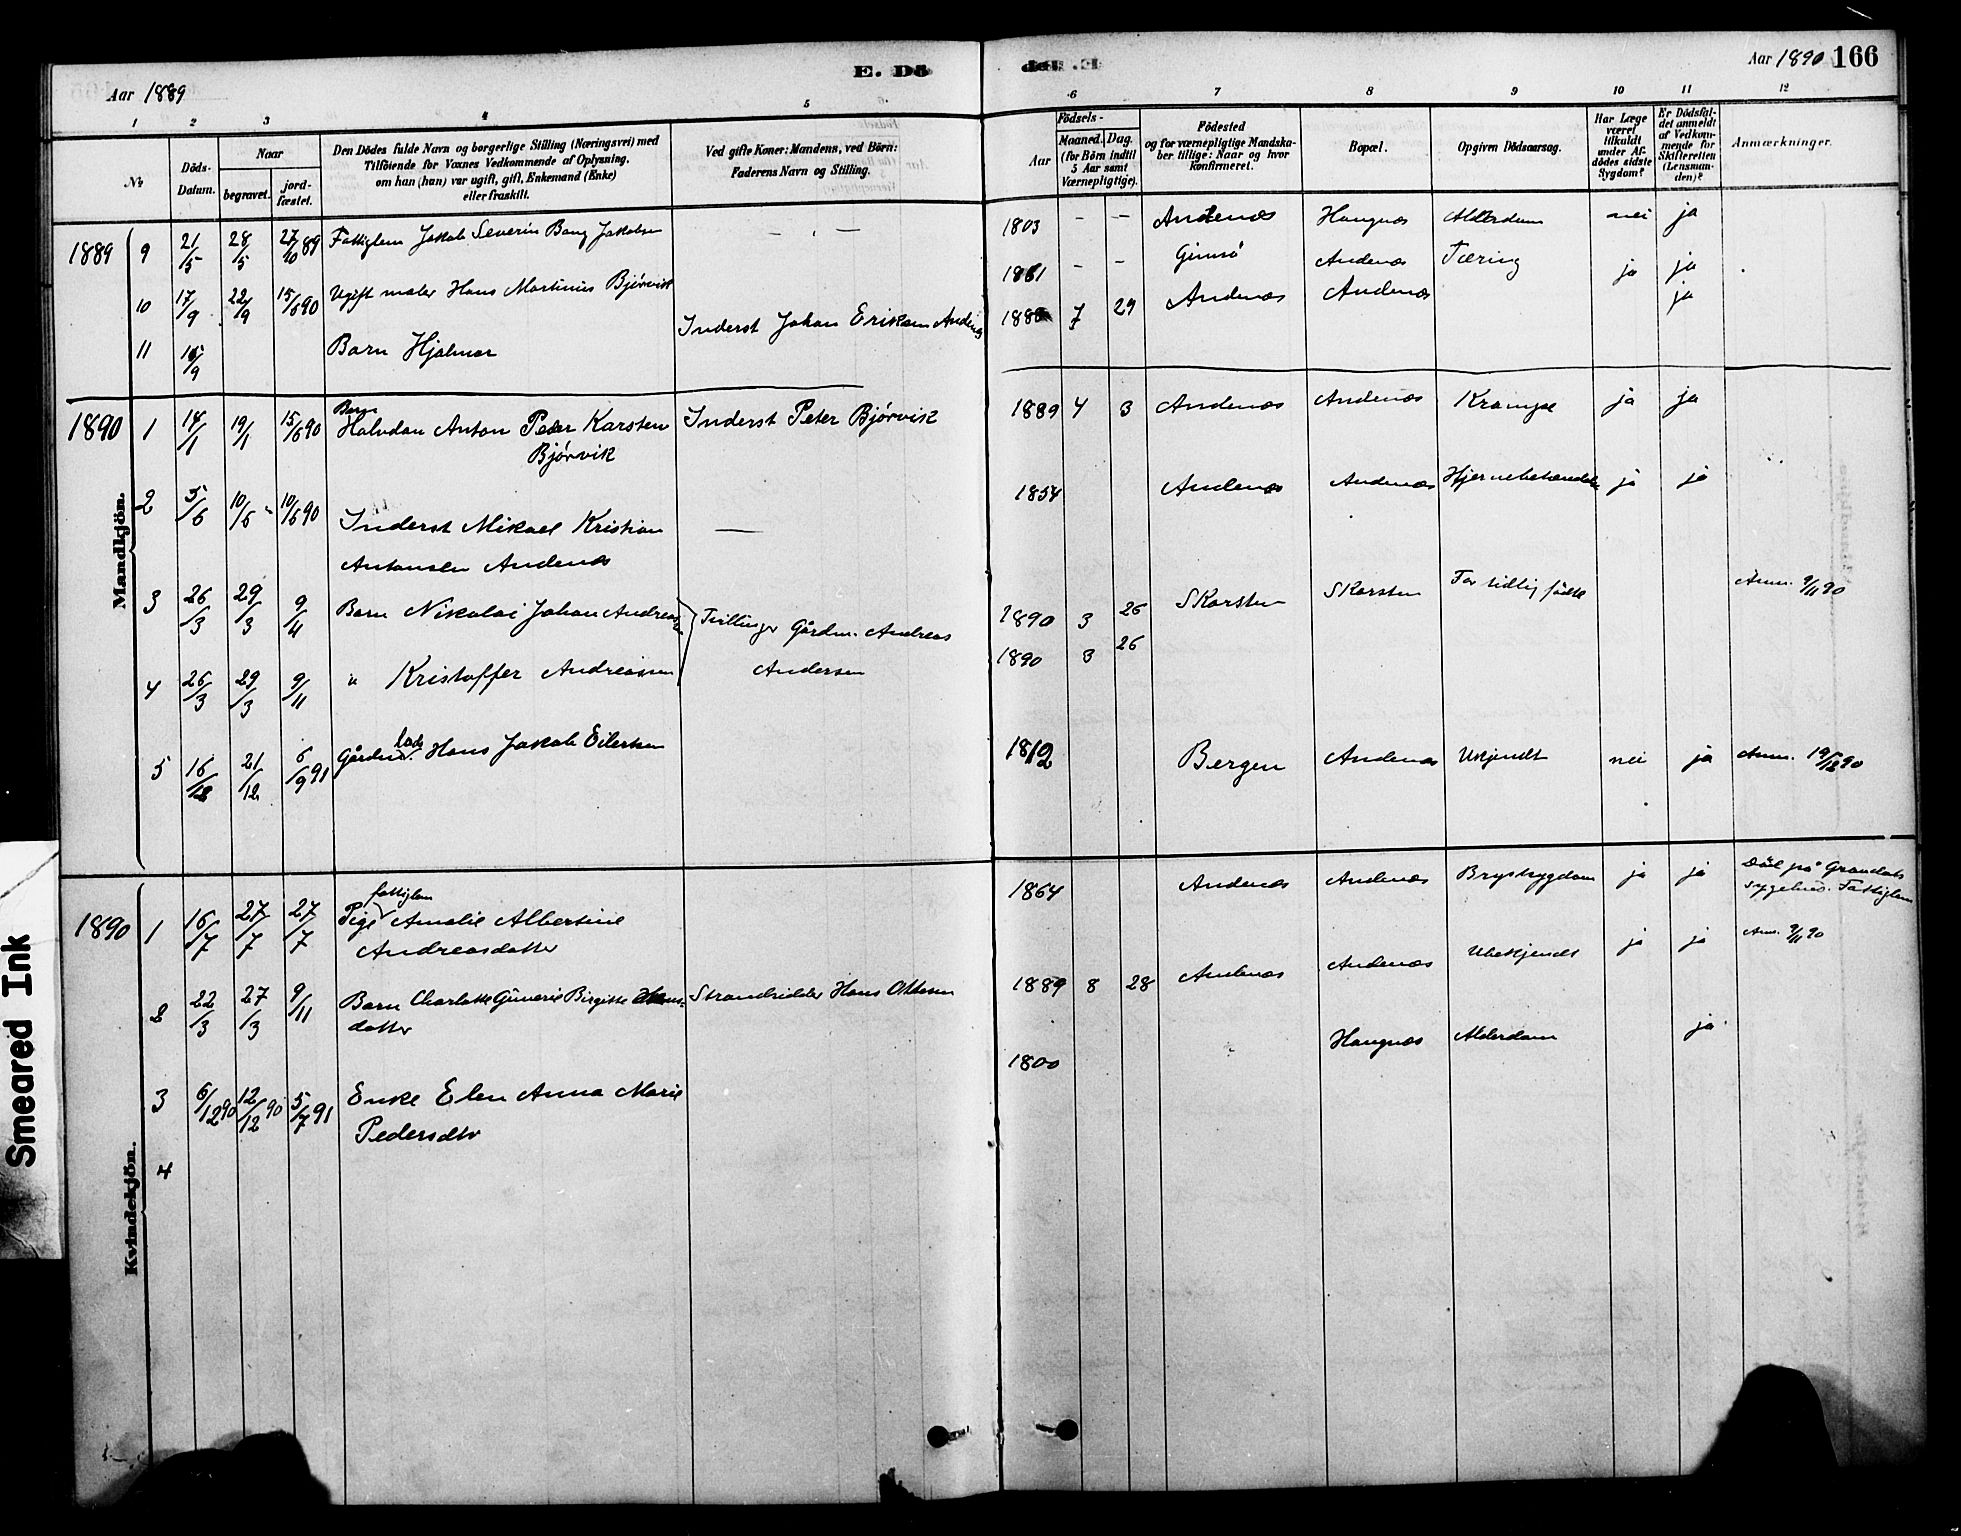 E. Dö
E. Död
Aar 1889
Aar 1890 166
1 2 3 4 5 6 7 8 9 10 11 12
№
Döds-
Datum.
Naar
begravet.
jord-
fæstet.
Den Dödes fulde Navn og borgerlige Stilling (Næringsvei) med
Tilföiende for Voxnes Vedkommende af Oplysning,
om han (hun) var ugift, gift, Enkemand (Enke)
eller fraskilt.
Ved gifte Koner: Mandens, ved Börn:
Faderens Navn og Stilling.
Födsels-
Aar
Maaned. Dag.
(for Börn indtil
5 Aar samt
Værnepligtige).
Födested
og for værnepligtige Mandska-
ber tillige: Naar og hvor
konfirmeret.
Bopæl.
Opgiven Dödsaarsag.
Har Læge
været
tilkaldt
under Af-
dödes sidste
Sygdom?
Er Dödsfal-
det anmeldt
af Vedkom-
mende for
Skifteretten
(Lensman-
den)?
Anmærkninger.
1889 9 21/5 28/5 27/10 89 Fattiglem Jakob Severin Bang Jakobsen — — 1803 – – Andenæs Haugnæs Alderdom nei ja
10 17/9 22/9 15/6 90 Ugift maler Hans Martinus Bjørvik 1861 – – Gimsö Andenæs Tæring ja ja
11 15/9 Barn Hjalmar Inderst Johan Eriksen Andenæs 7 29 Andenæs Andenæs ja
Mandkjön.
1890 1 14/1 19/1 15/6 90 Barn
Halvdan Anton Peder Karsten
Bjørvik
Inderst Peter Bjørvik 1889 4 3 Andenæs Andenæs Krampe ja ja
2 5/6 10/6 10/6 90 Inderst Mikael Kristian
Antonsen Andenæs
— 1854 Andenæs Andenæs ja ja
3 26/3 29/3 9/11 Barn Nikolai Johan Andreassen
Tvillinger Gårdm. Andreas
Andersen
1890 3 26 Skarsten Skarsten For tidlig födte Anm. 9/11 90
4 26/3 29/3 9/11 " Kristoffer Andreassen 1890 3 26
5 16/12 21/12 6/9 91 Gårdm. Hans Jakob Eilertsen 1812 Bergen Andenæs Ukjendt nei ja Anm. 19/12 90
Kvindekjön.
1890 1 16/7 27/7 27/7 fattiglem
Pige Amalie Albertine
Andreasdatter
1864 Andenæs Andenæs Brystsygdom ja ja Död på
Sygehus. Fattiglem
2 22/3 27/3 9/11 Barn Charlotte Birgitte Hans-
datter
Hans Ottesen 1889 8 28 Andenæs Andenæs Ubekjendt ja ja Anm. 9/11 90
3 6/12 90 12/12 90 5/7 91 Enke Elen Anna Marie
Pedersdtr
1800 Haugnæs Alderdom ja
4
Smeared Ink